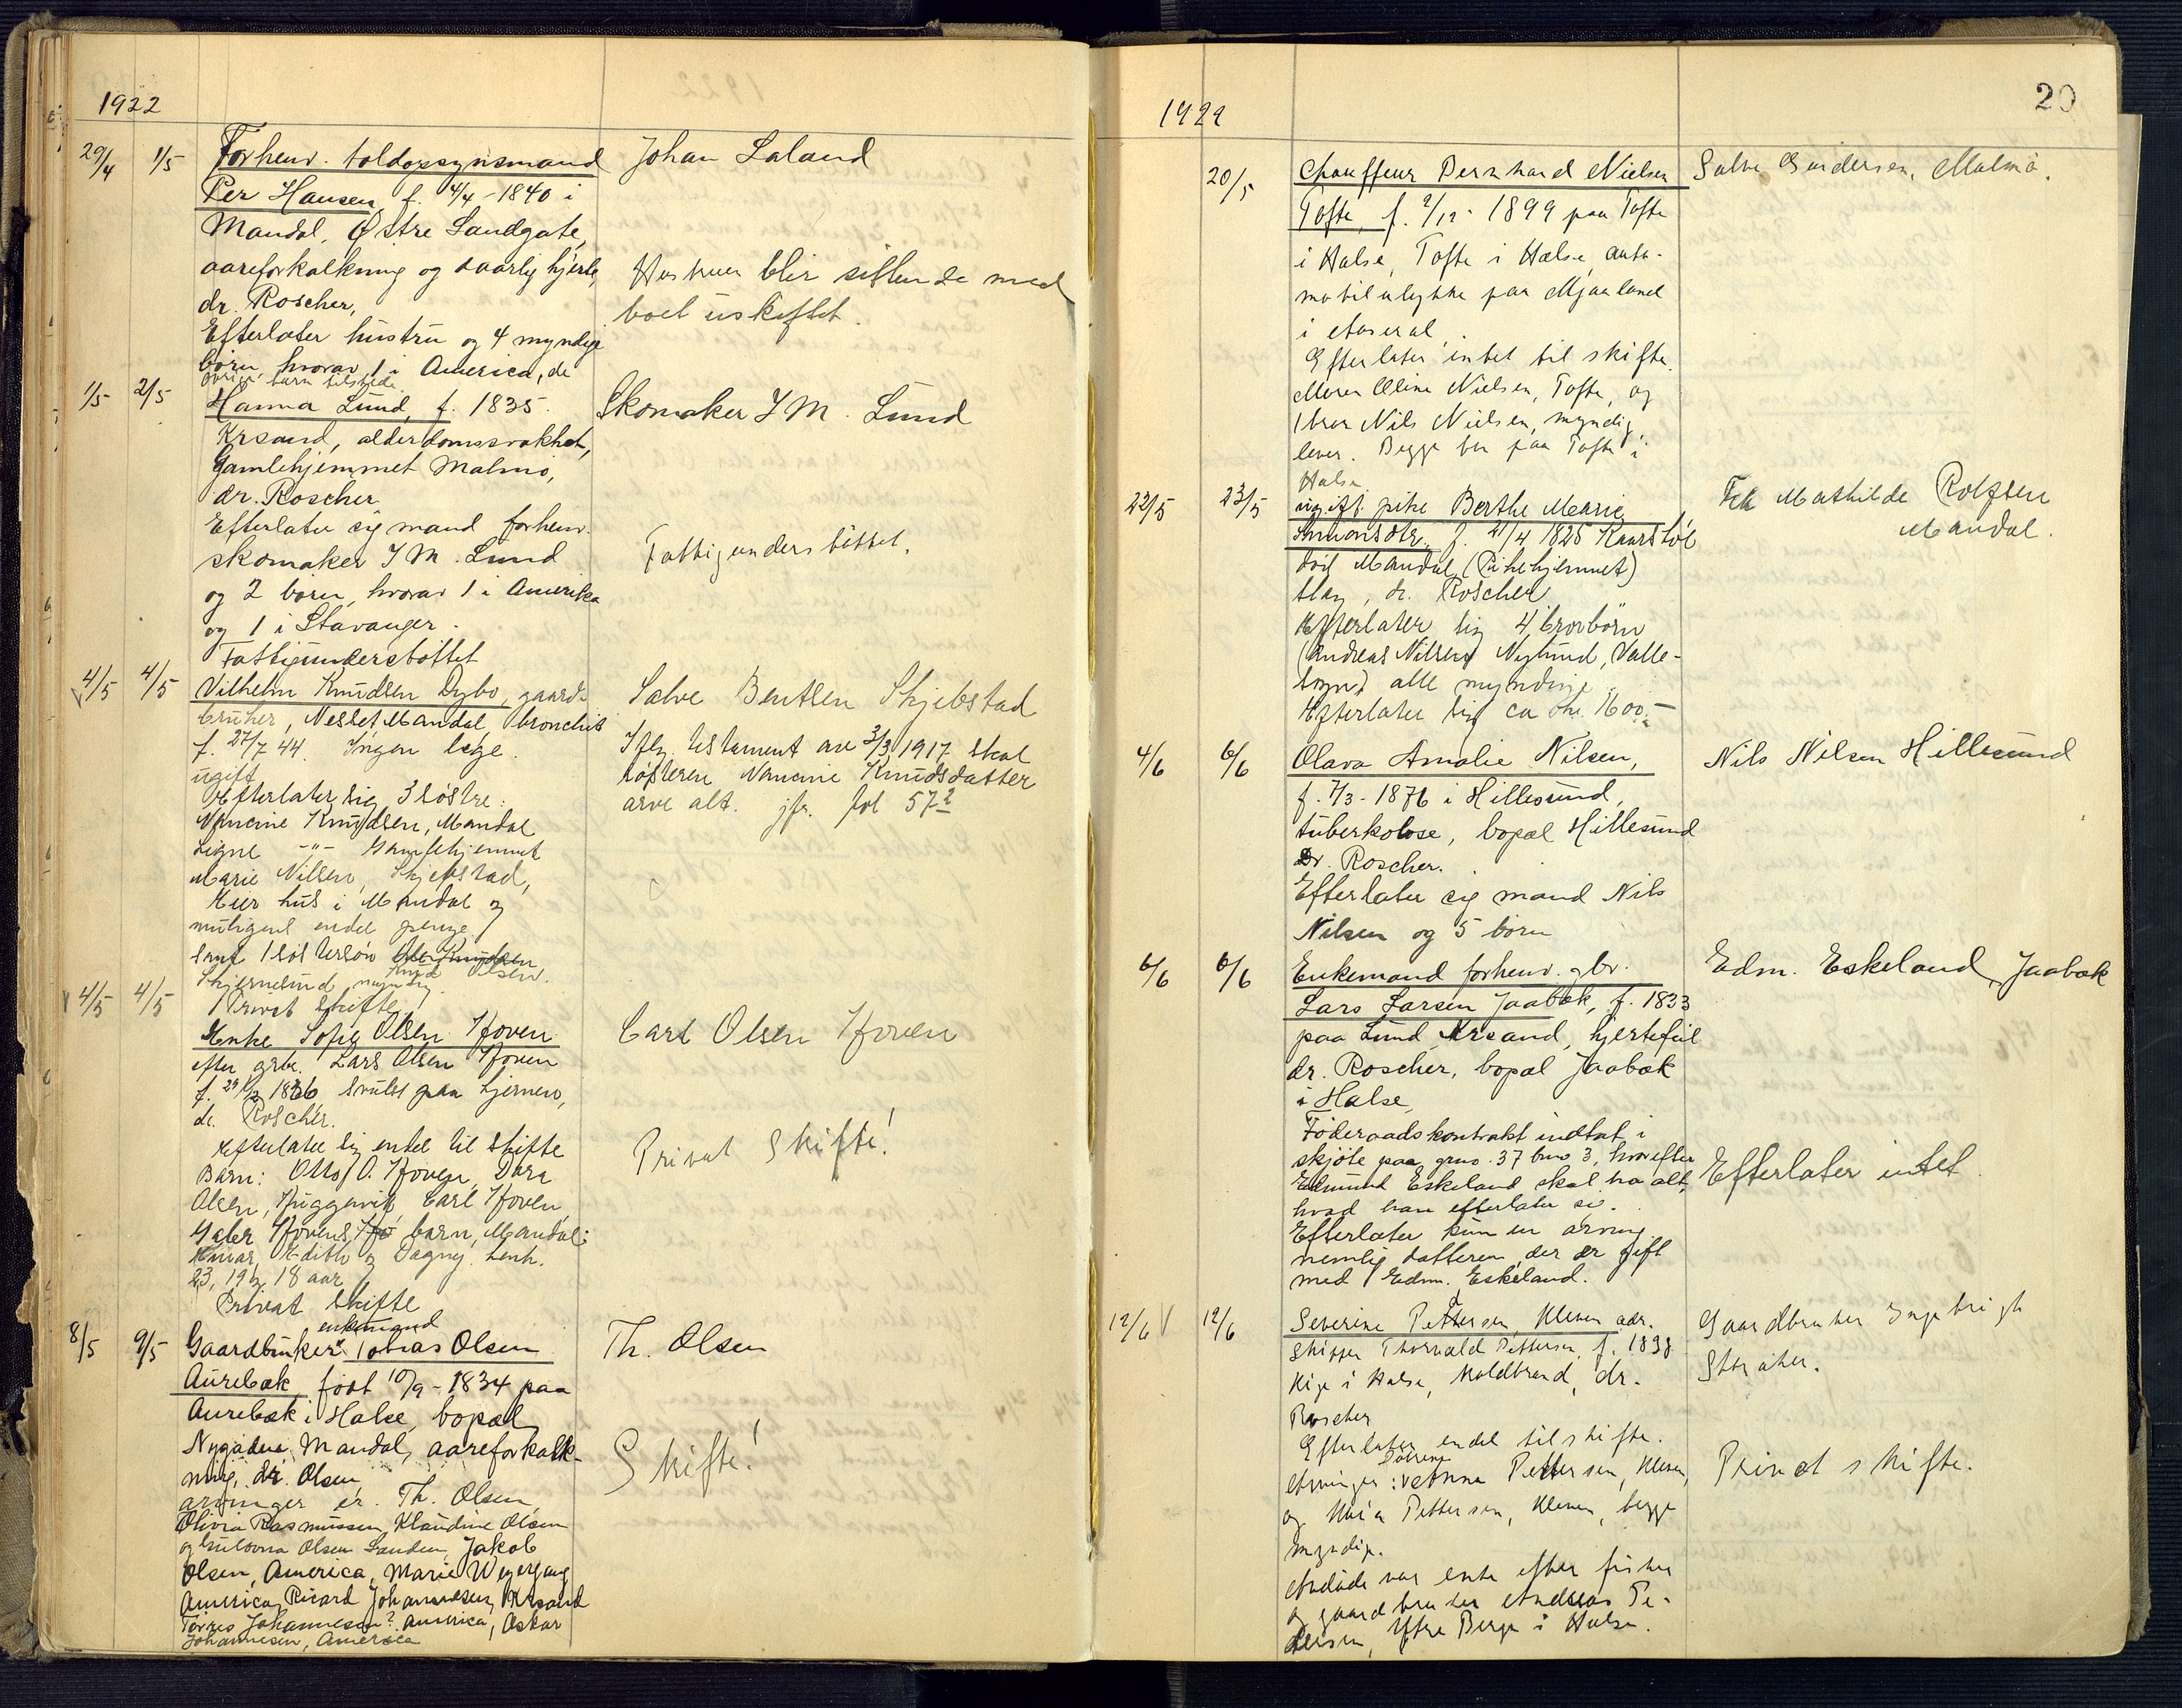 1922
29/4 1/5 Forhenv. toldopsynsmand
Per Hansen, f. 4/4-1840 i
Mandal, Østre Landgate,
aareforkalkning og daarlig hjerte,
dr. Roscher,
Efterlater hustru og 4 myndige
børn, hvorav 1 i America, de
øvrige barn tilstede
Johan Laland
Hustruen blir sittende med
boet uskiftet.
1/5 2/5 Hanna Lund, f. 1835.
Krsand, alderdomssvakhet,
Gamlehjemmet Malmø,
dr. Roscher
Efterlater sig mand forhenv.
skomaker J M. Lund
og 2 børn, hvorav 1 i Amerika
og 1 i Stavanger.
Fattigunderstøttet
Skomaker J M. Lund
Fattigunderstøttet.
4/5 4/5 Vilhelm Knudsen Dybo, gaard-
bruker, Nesset, Mandal, bronchit
f. 27/7 44. Ingen læge.
ugift
Efterlater sig 3 søstre:
Nancine Knudsen, Mandal
Signe -"- Gamlehjemmet
Marie Nilsen, Skjebstad,
Eier hus i Mandal og
muligens endel penge
samt 1 søstersøn Ole Knudsen
Knud Olsen.
Skjernesund myndig.
Privat skifte
Salve Bentsen Skjebstad
Iflg. testament av 3/3 1917 skal
søsteren Nancine Knudsdatter
arve alt. jfr. fol 572
4/5 4/5 Enke Sofie Olsen Hoven
efter grbr. Lars Olsen Hoven
dr. Roscher.
Efterlater sig endel til skifte
Barn: Otto O. Hoven, Dora
Olsen, Carl Hoven,
Hovens barn, Mandal:
Einar, Edith og Dagny. henh.
23, 19 og 18 aar
Privat skifte
Carl Olsen Hoven
Privat Skifte!
8/5 9/5 enkemand
Gaardbruker Tobias Olsen
Aurebæk, født 10/9-1834 paa
Aurebæk i Halse, bopæl
Nygaden, Mandal, aareforkalk-
ning, dr. Olsen,
arvinger er. Th. Olsen,
Olivia Rasmussen, Klaudine Olsen
og Gulovna Olsen Sanden, Jakob
Olsen, America, Marie Weyergang
America, Ricard Johannesen, Krsand
Torres Johannesen? America, Oskar
Johannesen, America
Th. Olsen
Skifte!
1922
20
20/5 Chauffeur Bernhard Nielsen
Tofte, f. 2/12-1899 paa Tofte
i Halse, Tofte i Halse, auto-
mobilulykke paa Mjaaland
i Aaseral.
Efterlater intet til skifte.
Moren Oline Nielsen, Tofte, og
1 bror Nils Nielsen, myndig,
lever. Begge bor paa Tofte i
Halse
Salve Gundersen, Malmø.
22/5 23/5 ugift pike Berthe Marie
Simonsdtr. f. 21/4 1825 Kaarstøl
død Mandal (Pikehjemmet)
slag, dr. Roscher
Efterlater sig 4 brorbørn
(Andreas Nilsen Nylund, Valle-
sogn) alle myndige
Efterlater sig ca kr. 1600.-
Frk Mathilde Rolfsen
Mandal.
4/6 6/6 Olava Amalie Nilsen,
f. 7/3-1876 i Hillesund,
tuberkolose, bopæl Hillesund
Dr. Roscher.
Efterlater sig mand Nils
Nilsen og 5 børn
Nils Nilsen Hillesund
6/6 6/6 Enkemand forhenv. gbr.
Lars Larsen Jaabæk, f. 1833
paa Lund, Krsand, hjertefeil
dr. Roscher, bopæl Jaabæk
i Halse,
Føderaadskontrakt indtat i
skjøte paa gno. 37 bno 3, hvorefter
Edmund Eskeland skal ha alt,
hvad han efterlater si.
Efterlater kun en arving
nemlig datteren, der er gift
med Edm. Eskeland.
Edm. Eskeland, Jaabæk
Efterlater intet.
12/6 12/6 Severine Pettersen, Kleven adr.
skipper Thorvald Pettersen, f. 1838
i Halse, koldbrand, dr.
Roscher
Efterlater endel til skifte.
Døtrene
Arvinger: Anna Pettersen, Kleven,
og Maria Pettersen, Kleven, begge
myndige.
Avdøde var enke efter fisker
og gaardbruker Andreas Pe-
dersen, Ytre Berge i Halse.
Gaardbruker Ingebrigt
Privat skifte.